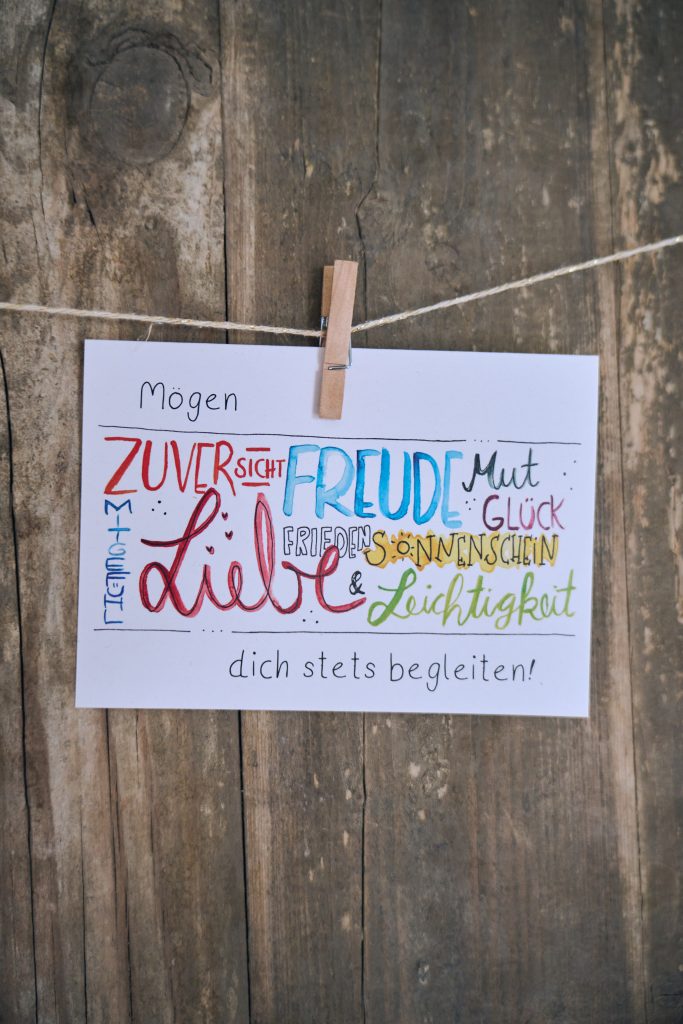 Mögen
ZUVERSICHT FREUDE Mut
GLÜCK
MITGEFÜHL
Liebe FRIEDEN SONNENSCHEIN
& Leichtigkeit
dich stets begleiten!